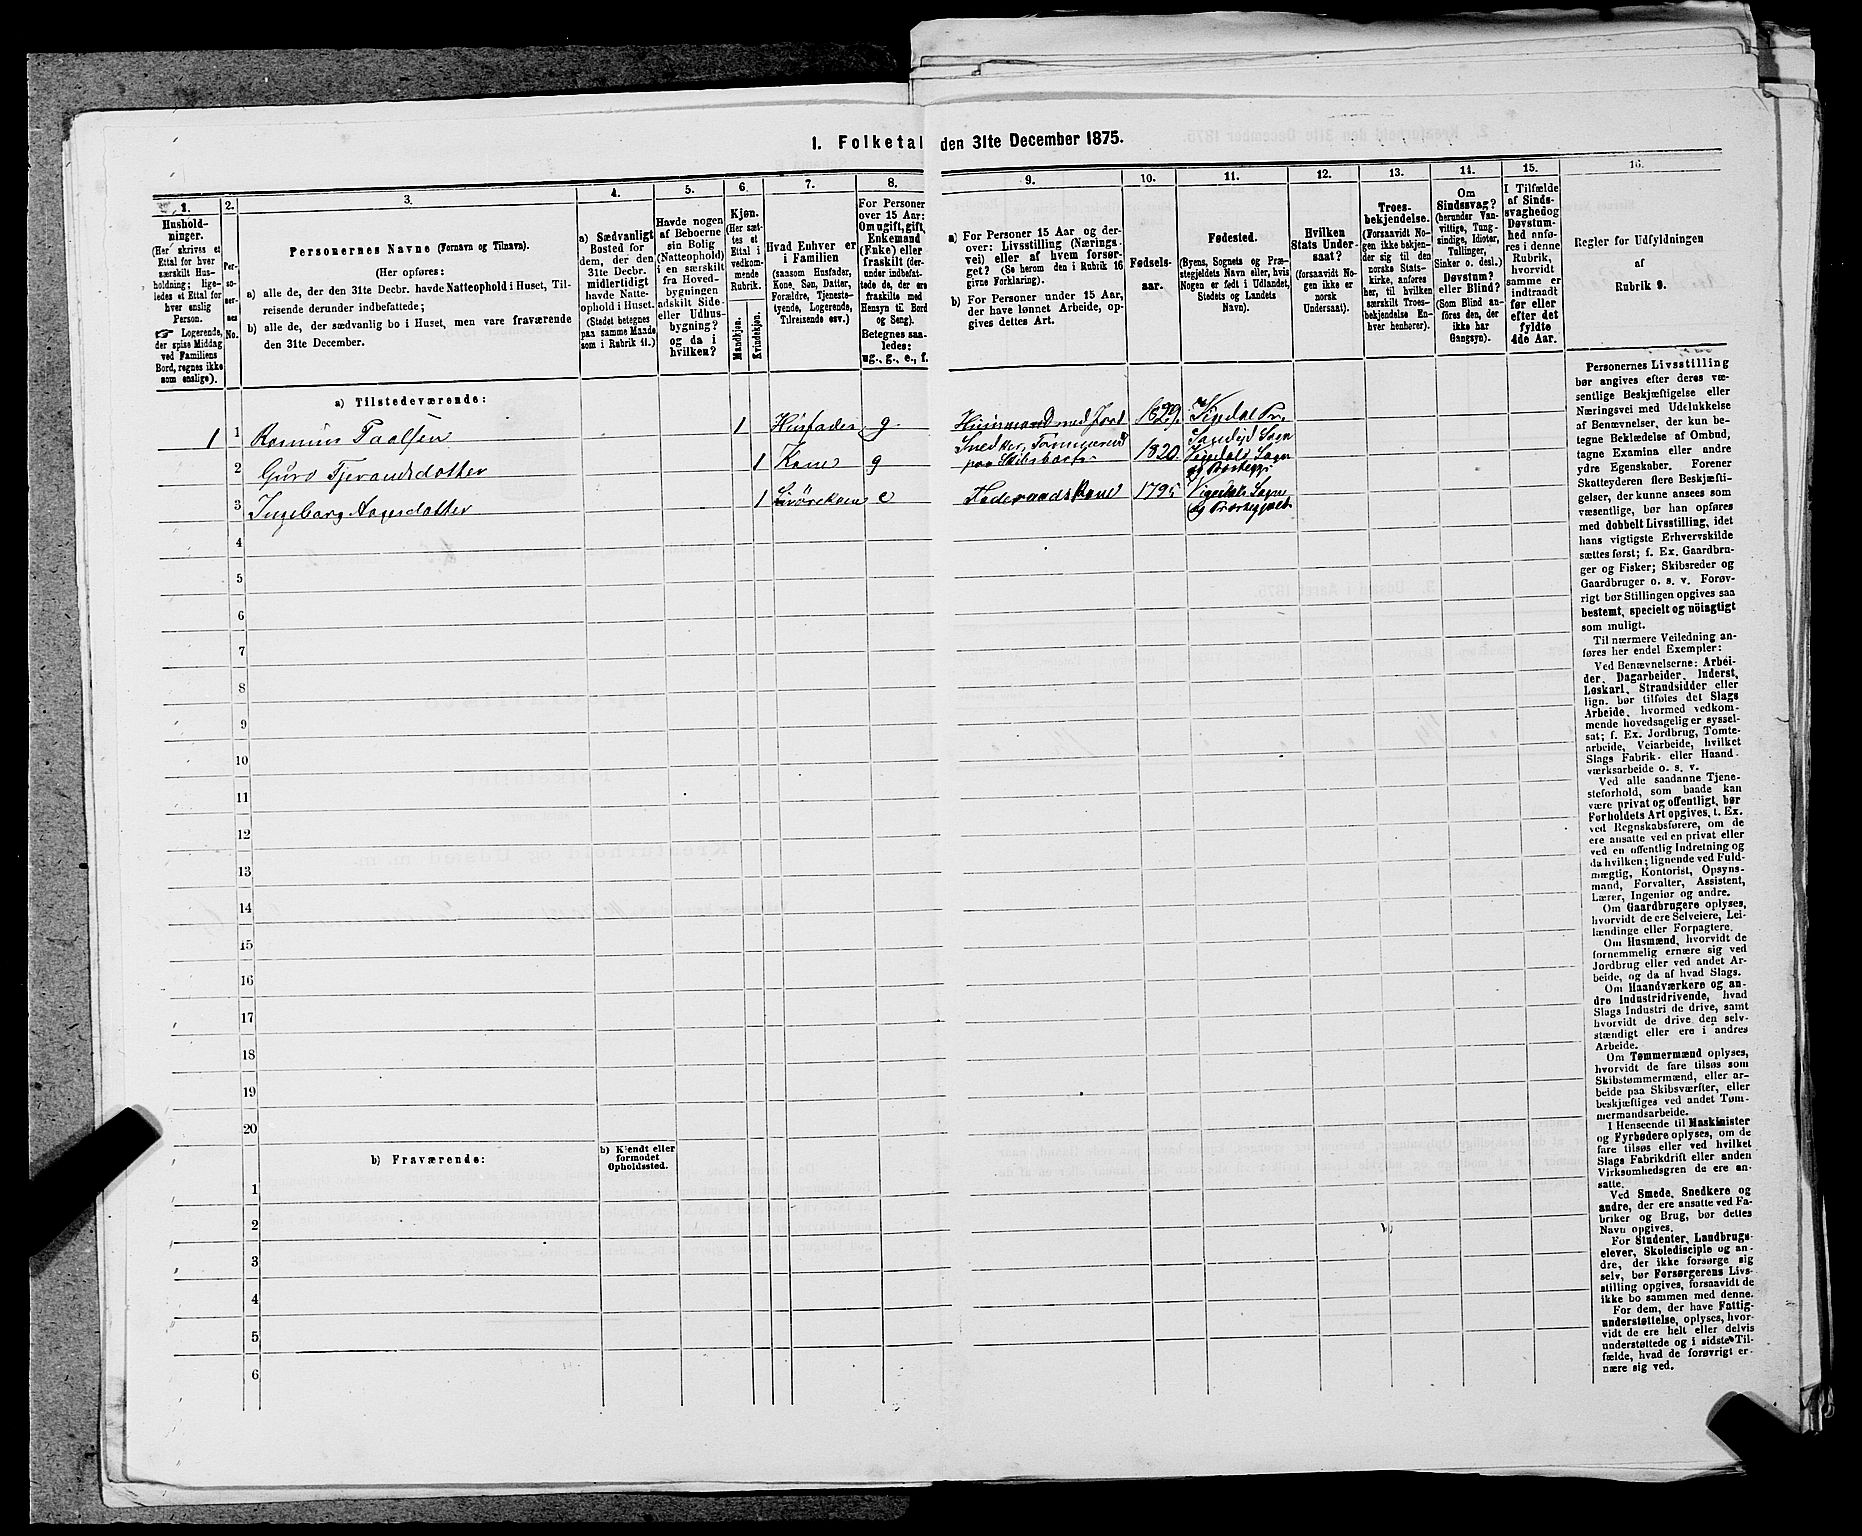 1. Folketal den 31te December 1875.
1.
Hushold-
ninger.
(Her skrives et
Ettal for hver
særskilt Hus-
holdning; lige-
ledes et Ettal for
hver enslig
Person.
Logerende,
der spise Middag
ved Familiens
Bord, regnes ikke
som enslige).
2.
Per-
so-
ner-
nes
No.
3.
Personernes Navne (Fornavn og Tilnavn).
(Her opføres:
a) alle de, der den 31te Decbr. havde Natteophold i Huset, Til-
reisende derunder indbefattede;
b) alle de, der sædvanlig bo i Huset, men vare fraværende
den 31te December.
4.
a) Sædvanligt
Bosted for
dem, der den
31te Decbr.
midlertidigt
havde Natte-
ophold i Huset.
(Stedet betegnes
paa samme Maade
som i Rubrik 11.)
5.
Havde nogen
af Beboerne
sin Bolig
(Natteophold)
i en særskilt
fra Hoved-
bygningen
adskilt Side-
eller Udhus-
bygning?
og da i
hvilken?
6.
Kjøn.
(Her sæt-
tes et
Ettal i
vedkom-
mende
Rubrik.
Mandkjøn.
Kvindekjøn.
7.
Hvad Enhver er
i Familien
(saasom Husfader,
Kone, Søn, Datter,
Forældre, Tjeneste-
tyende, Logerende,
Tilreisende osv.)
8.
For Personer
over 15 Aar:
Om ugift, gift,
Enkemand
(Enke) eller
fraskilt (der-
under indbefat-
tede de, der ere
fraskilte med
Hensyn til Bord
og Seng).
Betegnes saa-
ledes:
ug., g., e., f.
9.
a) For Personer 15 Aar og der-
over: Livsstilling (Nærings-
vei) eller af hvem forsør-
get? (Se herom den i Rubrik 16
givne Forklaring).
b) For Personer under 15 Aar,
der have lønnet Arbeide, op-
gives dettes Art.
10.
Fødsels-
aar.
11.
Fødested.
(Byens, Sognets og Præ-
stegjeldets Navn eller, hvis
Nogen er født i Udlandet,
Stedets og Landets
Navn).
12.
Hvilken
Stats Under-
saat?
(forsaavidt No-
gen ikke er
norsk
Undersaat).
13.
Troes-
bekjendelse.
(Forsaavidt No-
gen ikke bekjen-
der sig til den
norske Stats-
kirke, anføres
her, til hvilken
særskilt Troes-
bekjendelse En-
hver henhører).
14.
Om
Sindssvag?
(herunder Van-
vittige, Tung-
sindige, Idioter,
Tullinger,
Sinker o. desl.)
Døvstum?
eller Blind?
(Som Blind an-
føres den, der
ikke har
Gangsyn).
15.
I Tilfælde
af Sinds-
svaghed og
Døvstum-
hed anfø-
res i denne
Rubrik,
hvorvidt
samme er
indtraadt
før eller
efter det
fyldte
4de Aar.
16.
Regler for Udfyldningen
af
Rubrik 9.
a) Tilstedeværende:
1 1 Rasmus Paalsen 1 Husfader g Huusmand med Jord 1829 Vigedal Pr
Snedker, Tømmermand Sandejd Sogn
2 Guro Tjerandsdotter 1 Kone g paa Skibsbaat 1820 Vigedals Sogn
3 Ingeborg Aagesdotter 1 e Føderaadskone 1795 Vigedals Sogn
og Præstegjeld
4
5
6
7
8
9
10
11
12
13
14
15
16
17
18
19
20
b) Fraværende:
b) Kjendt eller
formodet
Opholdssted.
1
2
3
4
5
6
Personernes Livsstilling
bør angives efter deres væ-
sentlige Beskjæftigelse eller
Næringsvei med Udelukkelse
af Benævnelser, der kun be-
tegne Beklædelse af Ombud,
tagne Examina eller andre
ydre Egenskaber. Forener
Skatteyderen flere Beskjæfti-
gelser, der kunne ansees som
væsentlige, bør han opføres
med dobbelt Livsstilling, idet
hans vigtigste Erhvervskilde
sættes først; f. Ex. Gaardbru-
ger og Fisker; Skibsreder og
Gaardbruger o. s. v. Forøv-
rigt bør Stillingen opgives saa
bestemt, specielt og nöiagtigt
som muligt.
Til nærmere Veiledning an-
føres her endel Exempler:
Ved Benævnelserne: Arbei-
der, Dagarbeider, Inderst,
Løskarl, Strandsidder eller
lign. bør tilføies det Slags
Arbeide, hvormed vedkom-
mende hovedsagelig er syssel-
sat; f. Ex. Jordbrug, Tomte-
arbeide, Veiarbeide, hvilket
Slags Fabrik- eller Haand-
værksarbeide o. s. v.
Ved alle saadanne Tjene-
steforhold, som baade kan
være privat og offentligt, bør
Forholdets Art opgives, t. Ex.
ved Regnskabsførere, om de
ere ansatte ved en privat eller
ved en offentlig Indretning og
da hvilken; lignende ved Fuld-
mægtig, Kontorist, Opsyns-
mand, Forvalter, Assistent,
Lærer, Ingeniør og andre.
Om Gaardbrugere oplyses,
hvorvidt de ere Selveiere, Lei-
lændinge eller Forpagtere.
Om Husmænd, hvorvidt de
fornemmelig ernære sig ved
Jordbrug eller ved andet Ar-
beide, og da af hvad Slags.
Om Haandværkere og an-
dre Industridrivende, hvad
Slags Industri de drive, samt
hvorvidt de drive den selv-
stændigt eller ere i andres
Arbeide.
Om Tømmermænd oplyses,
hvorvidt de fare tilsøs som
Skibstømmermænd, eller ar-
beide paa Skibsværfter, eller
beskjæftiges ved andet Tøm-
mermandsarbeide.
I Henseende til Maskinister
og Fyrbødere oplyses, om de
fare tilsøs eller ved hvilket
Slags Fabrikdrift eller anden
Virksomhedsgren de ere an-
satte.
Ved Smede, Snedkere og
andre, der ere ansatte ved Fa-
briker og Brug, bør dettes
Navn opgives.
For Studenter, Landbrugs-
elever, Skoledisciple og an-
dre, der ikke forsørge sig
selv, bør Forsørgerens Livs-
stilling opgives, forsaavidt de
ikke bo sammen med denne.
For dem, der have Fattig-
understøttelse, oplyses, hvor-
vidt de ere helt eller delvis
understøttede og i sidste Til-
fælde, hvad de forøvrigt er-
nære sig ved.